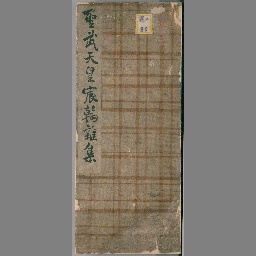 聖武天皇宸翰雜集